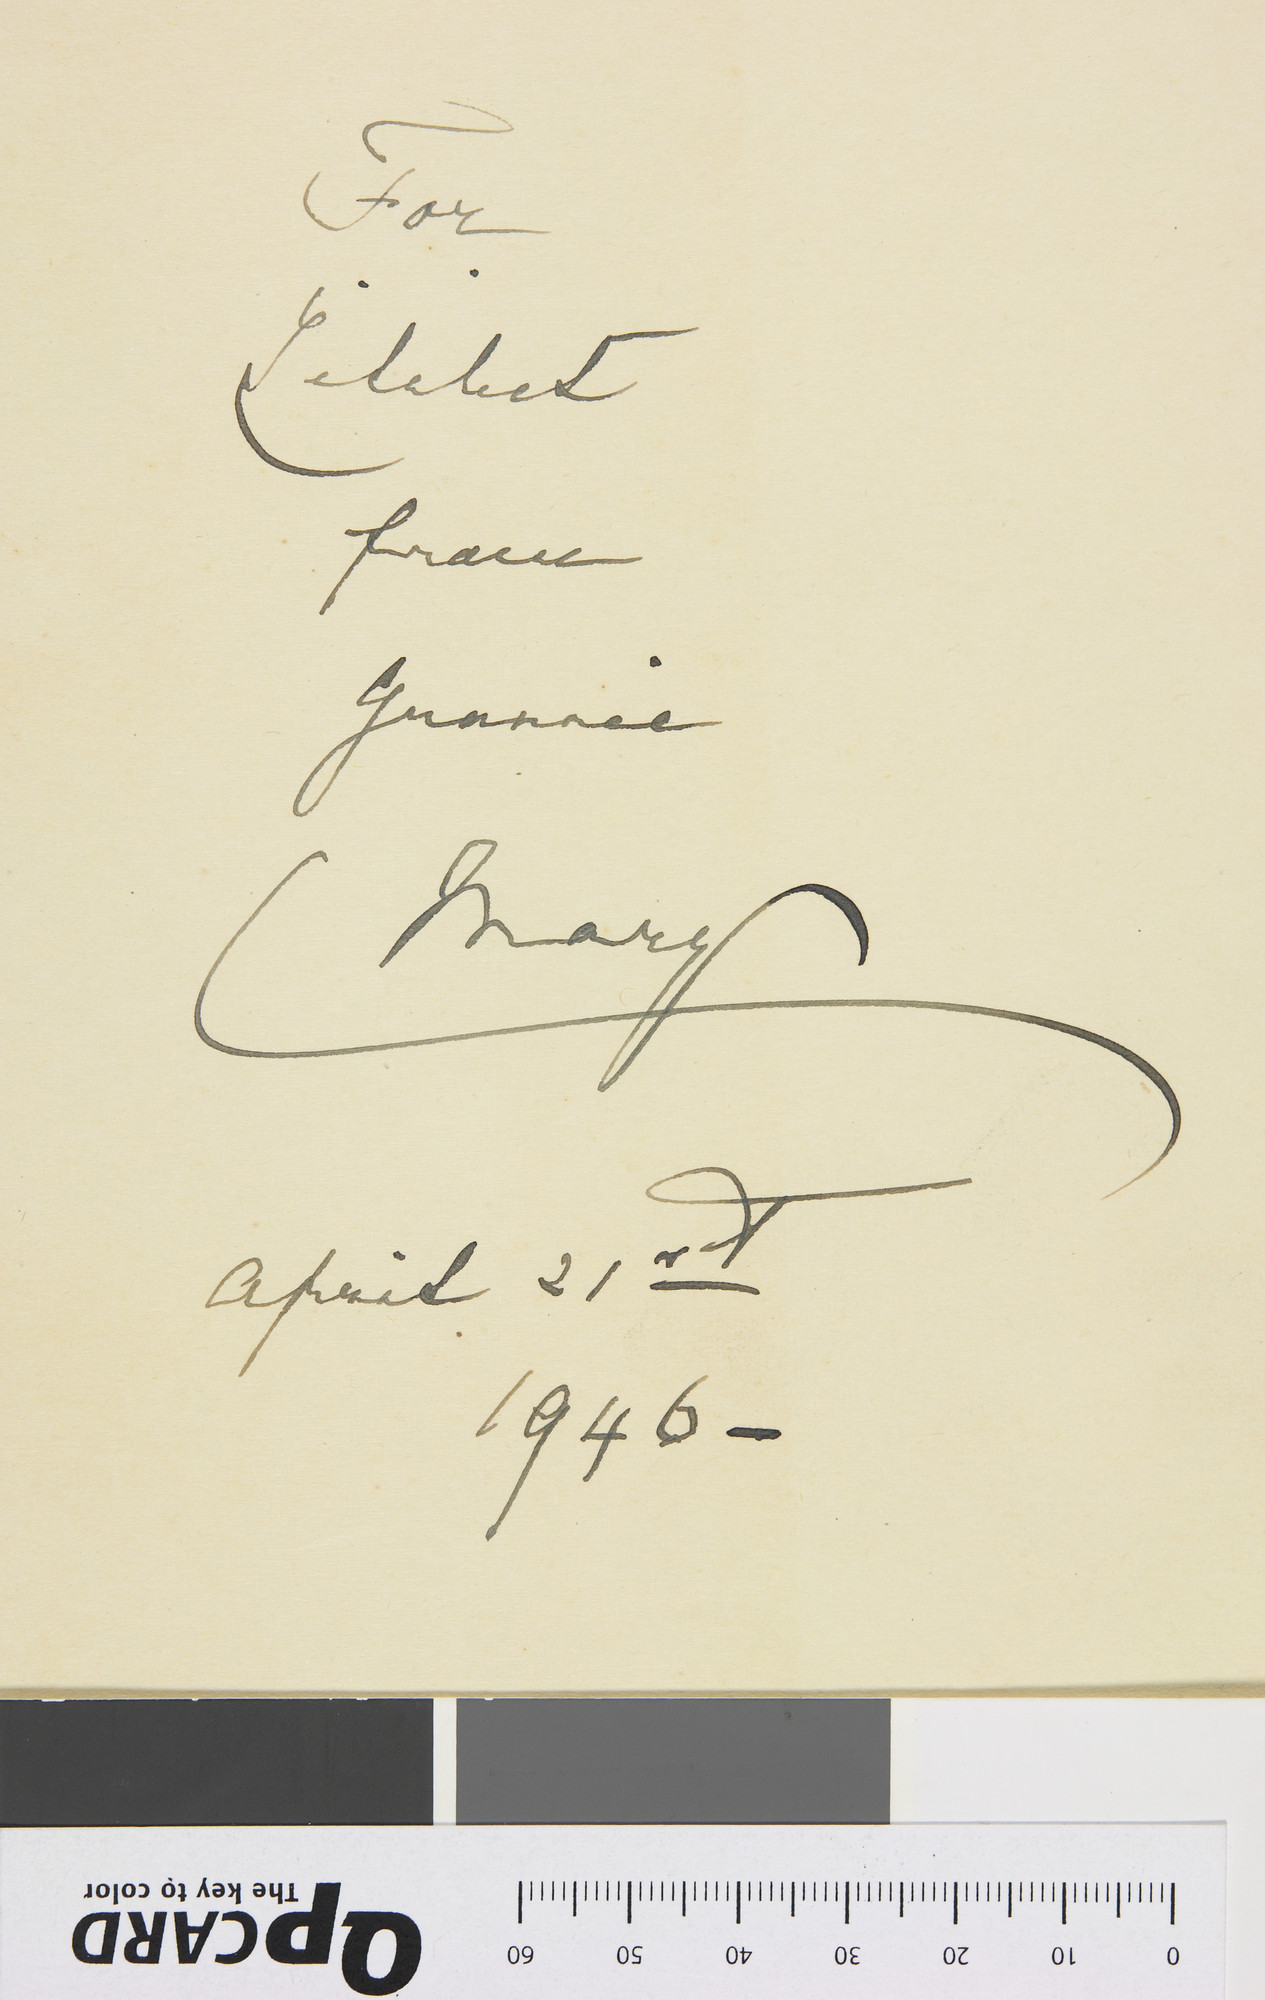 For
Lilibet
from
Grannie
Mary
April 21st
1946 –
0 10 20 30 40 50 60
QPCARD
The key to color